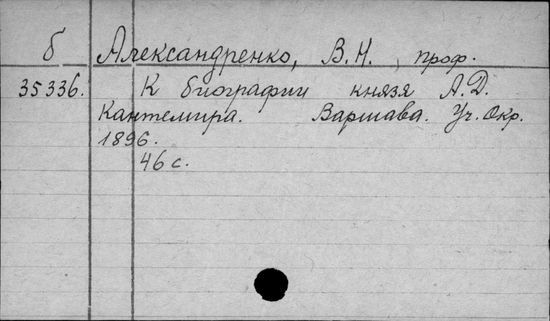 б Александренко, В.Н., проф.
35336. К биографии князя А.Д.
Кантемира. Варшава. Уч. Окр.
1896.
46 с.